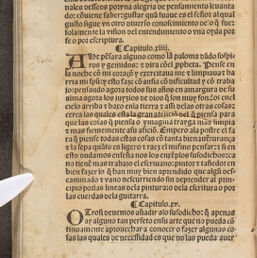 nales desseos por yna alegria de pensamiento leuanta
do: cõuiene saber: gustar q̃l fuaue es el señor al qual
gusto sigue vn otro diuerso conoscimiento de o q̃ sue
lamente la vision del entendimiento o yna oyda por
fe o por escriptura.
Capitulo. xiiij.
pésara alguno como la paloma vã do sospi
ros y gemidos: y dira õ el ꝓpheta. Pense en
la noche cõ mi coraçõ y exercitaua me e limpiaua mi
spũ: este fasẽ cõ ansia cõ dificultad y cõ traba
jo: pensando agora todos sus años en amargura de su
alma agora los juyzios de dios q̃ son muy fõdos en el
cielo arriba y baxo en la tierra y assi delas otras cosas
cerca las quales esta la grãn atẽcion del q̃ piensa para
que las cosas q̃ piẽsa o ymagina traya mas limpia
y mas firmemente a su afició. Empero ala postre el fa
ra q̃ piense todas estas cosas cõ tanta bienauenturãça
y la sepa quãto es ligero y raez el mismo pensar: si en
esto ouiessemos enseña nos los enxẽplos susodichos: ca
no tiene mas trabajo el escriuano: pintor y tañedor en
bien fazer lo q̃ han muy bien aprendido que algũ des
caminado y vano discurriendo sin deprender al prin
cipio por las lineas dela pintura o dela escritura o por
las cuerdas dela guitarra.
Capitulo. xv.
Otrosi deuemos añadir alo susodicho: q̃ apenas
ay alguno tan perfeto en su arte que no pueda cõ
tinuamente aprouechar a conoscer o fazer algunas co
sas las quales de necessidad es que no las pueda auer